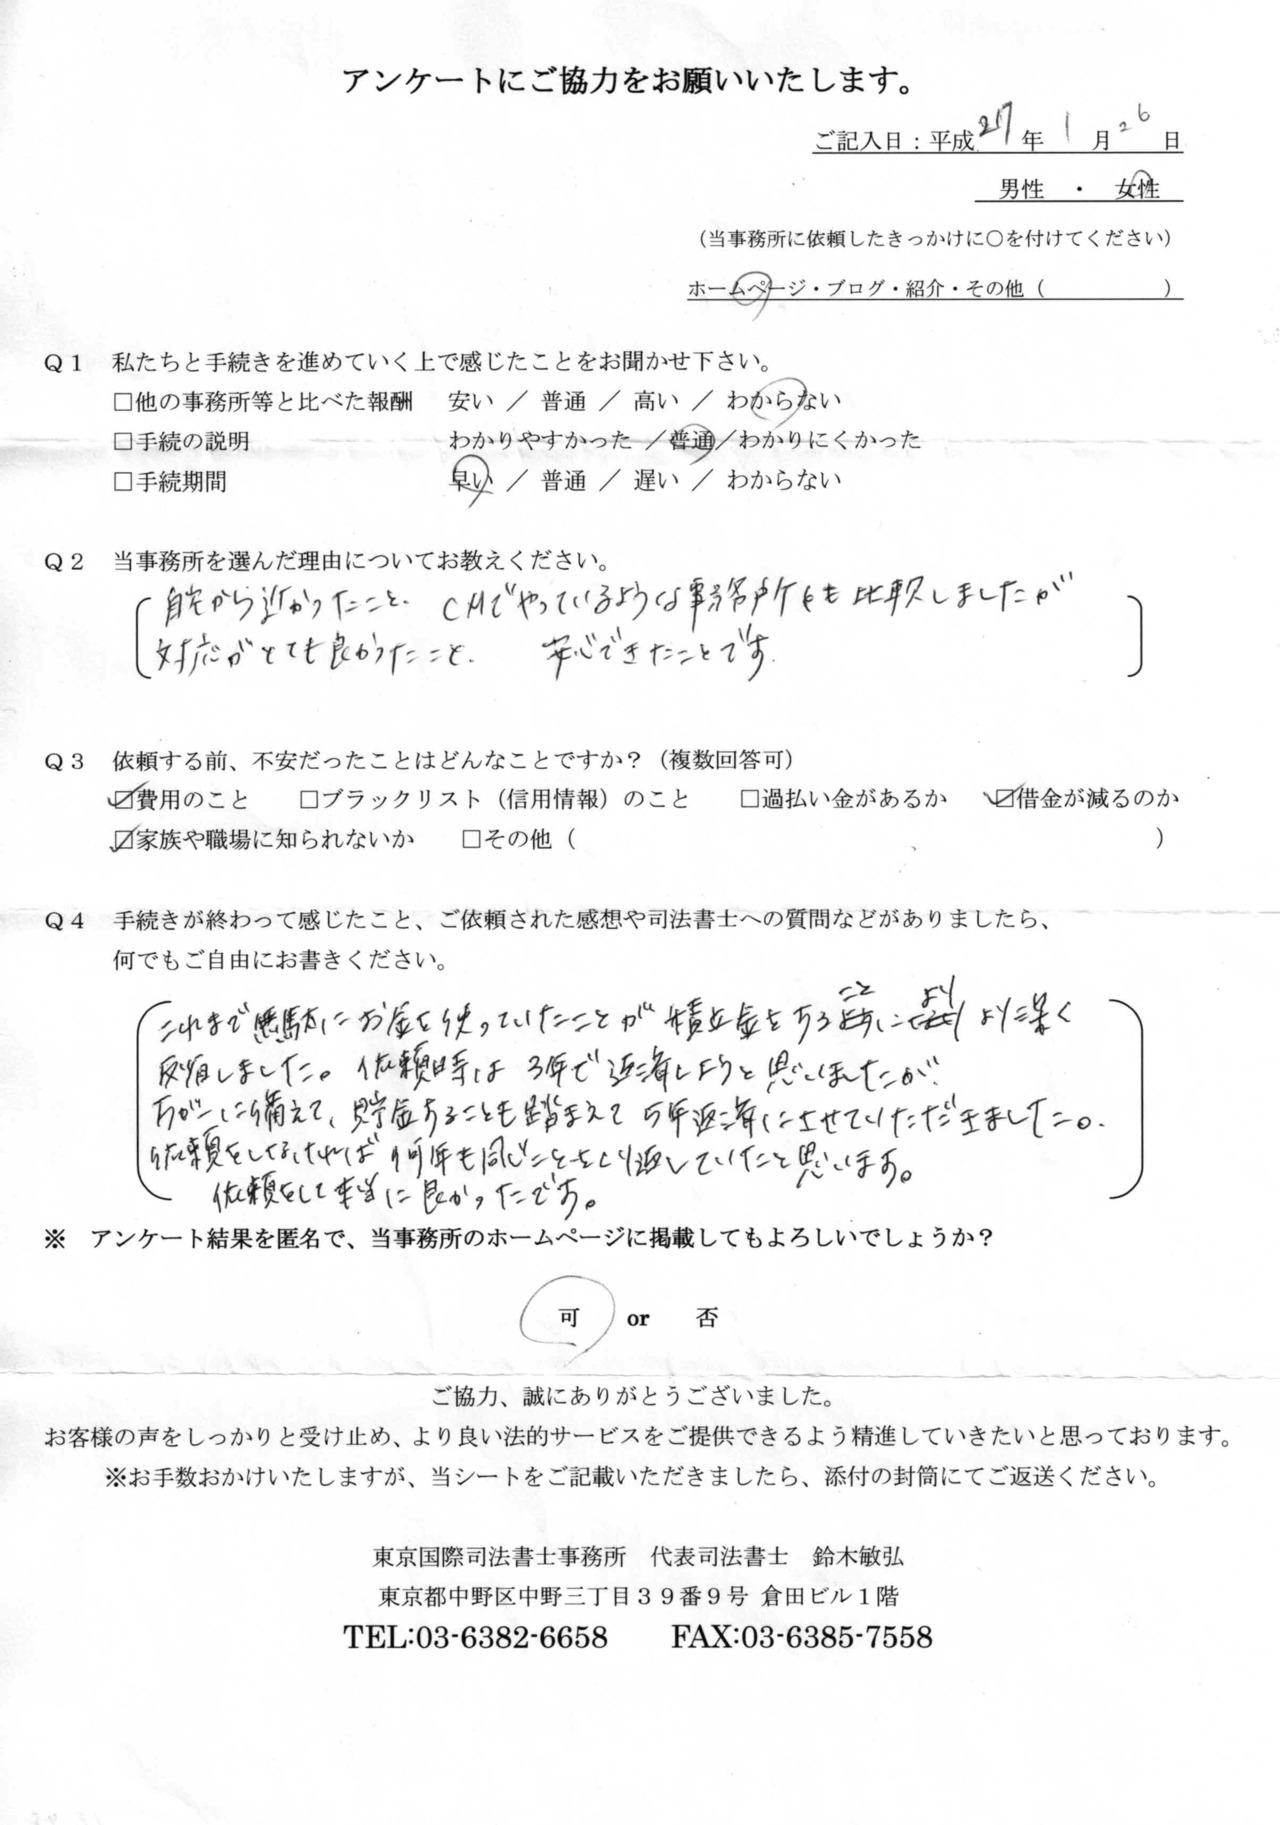 アンケートにご協力をお願いいたします。
ご記入日：平成27年1月26日
男性 ・ 女性
（当事務所に依頼したきっかけに○を付けてください）
ホームページ・ブログ・紹介・その他（　　　　　）
Ｑ１　私たちと手続きを進めていく上で感じたことをお聞かせ下さい。
□他の事務所等と比べた報酬　安い ／ 普通 ／ 高い ／ わからない
□手続の説明　わかりやすかった ／普通／わかりにくかった
□手続期間　早い ／ 普通 ／ 遅い ／ わからない
Ｑ２　当事務所を選んだ理由についてお教えください。
自宅から近かったこと、CMでやっているような事務所とも比較しましたが
対応がとても良かったこと、安心できたことです。
Ｑ３　依頼する前、不安だったことはどんなことですか？（複数回答可）
☑費用のこと　□ブラックリスト（信用情報）のこと　□過払い金があるか　☑借金が減るのか
☑家族や職場に知られないか　□その他（　　　　　）
Ｑ４　手続きが終わって感じたこと、ご依頼された感想や司法書士への質問などがありましたら、
何でもご自由にお書きください。
これまで無駄にお金を使っていたことが積立金をすることにより より深く
反省しました。依頼時は3年で返済しようと思いましたが、
万が一に備えて、貯金することも踏まえて5年返済にさせていただきました。
依頼をしなければ何年も同じことをくり返していたと思います。
依頼をして本当に良かったです。
※　アンケート結果を匿名で、当事務所のホームページに掲載してもよろしいでしょうか？
可　or　否
ご協力、誠にありがとうございました。
お客様の声をしっかりと受け止め、より良い法的サービスをご提供できるよう精進していきたいと思っております。
※お手数おかけいたしますが、当シートをご記載いただきましたら、添付の封筒にてご返送ください。
東京国際司法書士事務所　代表司法書士　鈴木敏弘
東京都中野区中野三丁目３９番９号 倉田ビル１階
TEL:03-6382-6658　FAX:03-6385-7558